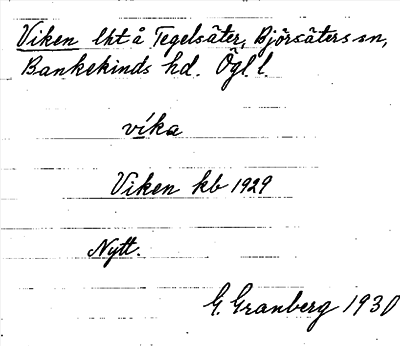 Viken lht å Tegelsäter, Björsäters sn,
Bankekinds hd. Ögl. l.
vi̇́ka
Viken kb 1929
Nytt.
G. Granberg 1930